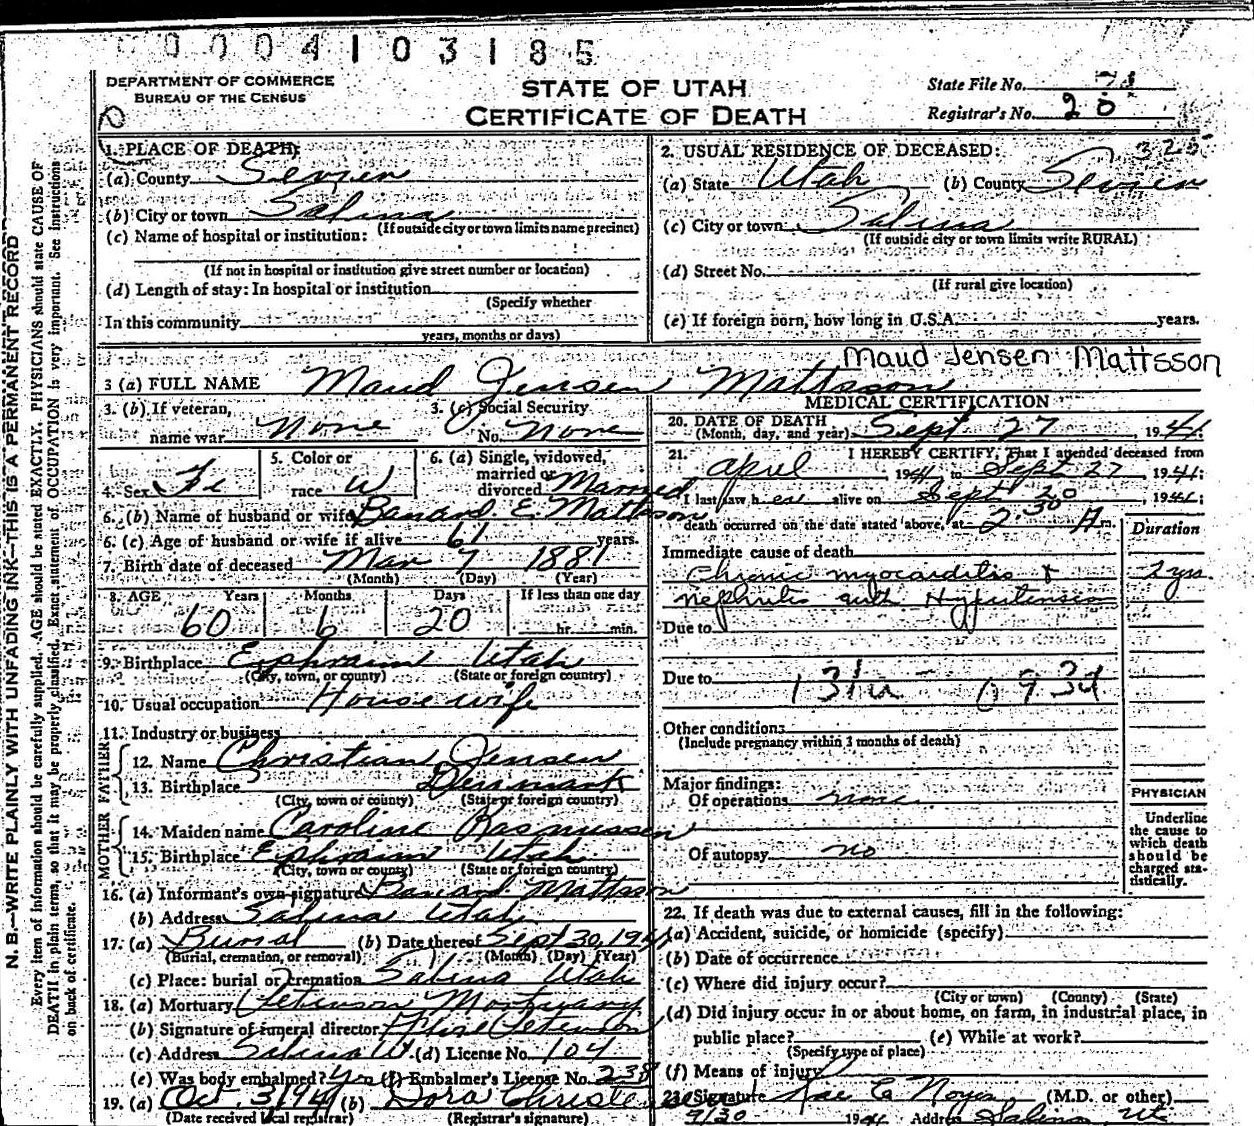 0004103185
DEPARTMENT OF COMMERCE
BUREAU OF THE CENSUS
STATE OF UTAH
CERTIFICATE OF DEATH
State File No.
Registrar's No. 20
1. PLACE OF DEATH:
(a) County Sevier
(b) City or town Salina
(If outside city or town limits name precinct)
(c) Name of hospital or institution:
(If not in hospital or institution give street number or location)
(d) Length of stay: In hospital or institution
(Specify whether
In this community
years, months or days)
2. USUAL RESIDENCE OF DECEASED:
(a) State Utah (b) County Sevier
(c) City or town Salina
(If outside city or town limits write RURAL)
(d) Street No.
(If rural give location)
(e) If foreign born, how long in U.S.A. years.
Maud Jensen Mattsson
3 (a) FULL NAME Maud Jensen Mattsson
3. (b) If veteran, name war None
3. (c) Social Security No. None
4. Sex Fe
5. Color or race W
6. (a) Single, widowed, married or divorced Married
6. (b) Name of husband or wife Banard E. Mattsson
6. (c) Age of husband or wife if alive 61 years.
7. Birth date of deceased Mar 7 1881
(Month) (Day) (Year)
8. AGE Years Months Days If less than one day
60 6 20 hr. min.
9. Birthplace Ephraim Utah
(City, town, or county) (State or foreign country)
10. Usual occupation Housewife
11. Industry or business
FATHER
12. Name Christian Jensen
13. Birthplace Denmark
(City, town or county) (State or foreign country)
MOTHER
14. Maiden name Caroline Rasmussen
15. Birthplace Ephraim Utah
(City, town or county) (State or foreign country)
16. (a) Informant's own signature Banard Mattsson
(b) Address Salina Utah
17. (a) Burial (b) Date thereof Sept 30, 1941
(Burial, cremation, or removal) (Month) (Day) (Year)
(c) Place: burial or cremation Salina Utah
18. (a) Mortuary Mortuary
(b) Signature of funeral director
(c) Address Salina Ut. (d) License No. 104
(e) Was body embalmed? Yes (f) Embalmer's License No. 238
19. (a) Oct. 3 1941 (b) Dora
(Date received local registrar) (Registrar's signature)
MEDICAL CERTIFICATION
20. DATE OF DEATH
(Month, day, and year) Sept 27, 1941.
21. I HEREBY CERTIFY, That I attended deceased from
April 1941, to Sept 27 1941;
I last saw her alive on Sept 20 1941;
death occurred on the date stated above, at 2:30 A m.
Duration
Immediate cause of death
Chronic myocarditis & 2 yrs.
nephritis with Hypertension
Due to
Due to
Other conditions
(Include pregnancy within 3 months of death)
Major findings:
Of operations none
Of autopsy no
PHYSICIAN
Underline
the cause to
which death
should be
charged sta-
tistically.
22. If death was due to external causes, fill in the following:
(a) Accident, suicide, or homicide (specify)
(b) Date of occurrence
(c) Where did injury occur?
(City or town) (County) (State)
(d) Did injury occur in or about home, on farm, in industrial place, in
public place? (e) While at work?
(Specify type of place)
(f) Means of injury
23. Signature Rae E. Noyes (M.D. or other)
9/30 1941 Address Salina Ut
N. B.—WRITE PLAINLY WITH UNFADING INK—THIS IS A PERMANENT RECORD
Every item of information should be carefully supplied. AGE should be stated EXACTLY. PHYSICIANS should state CAUSE OF
DEATH in plain terms, so that it may be properly classified. Exact statement of OCCUPATION is very important. See instructions
on back of certificate.